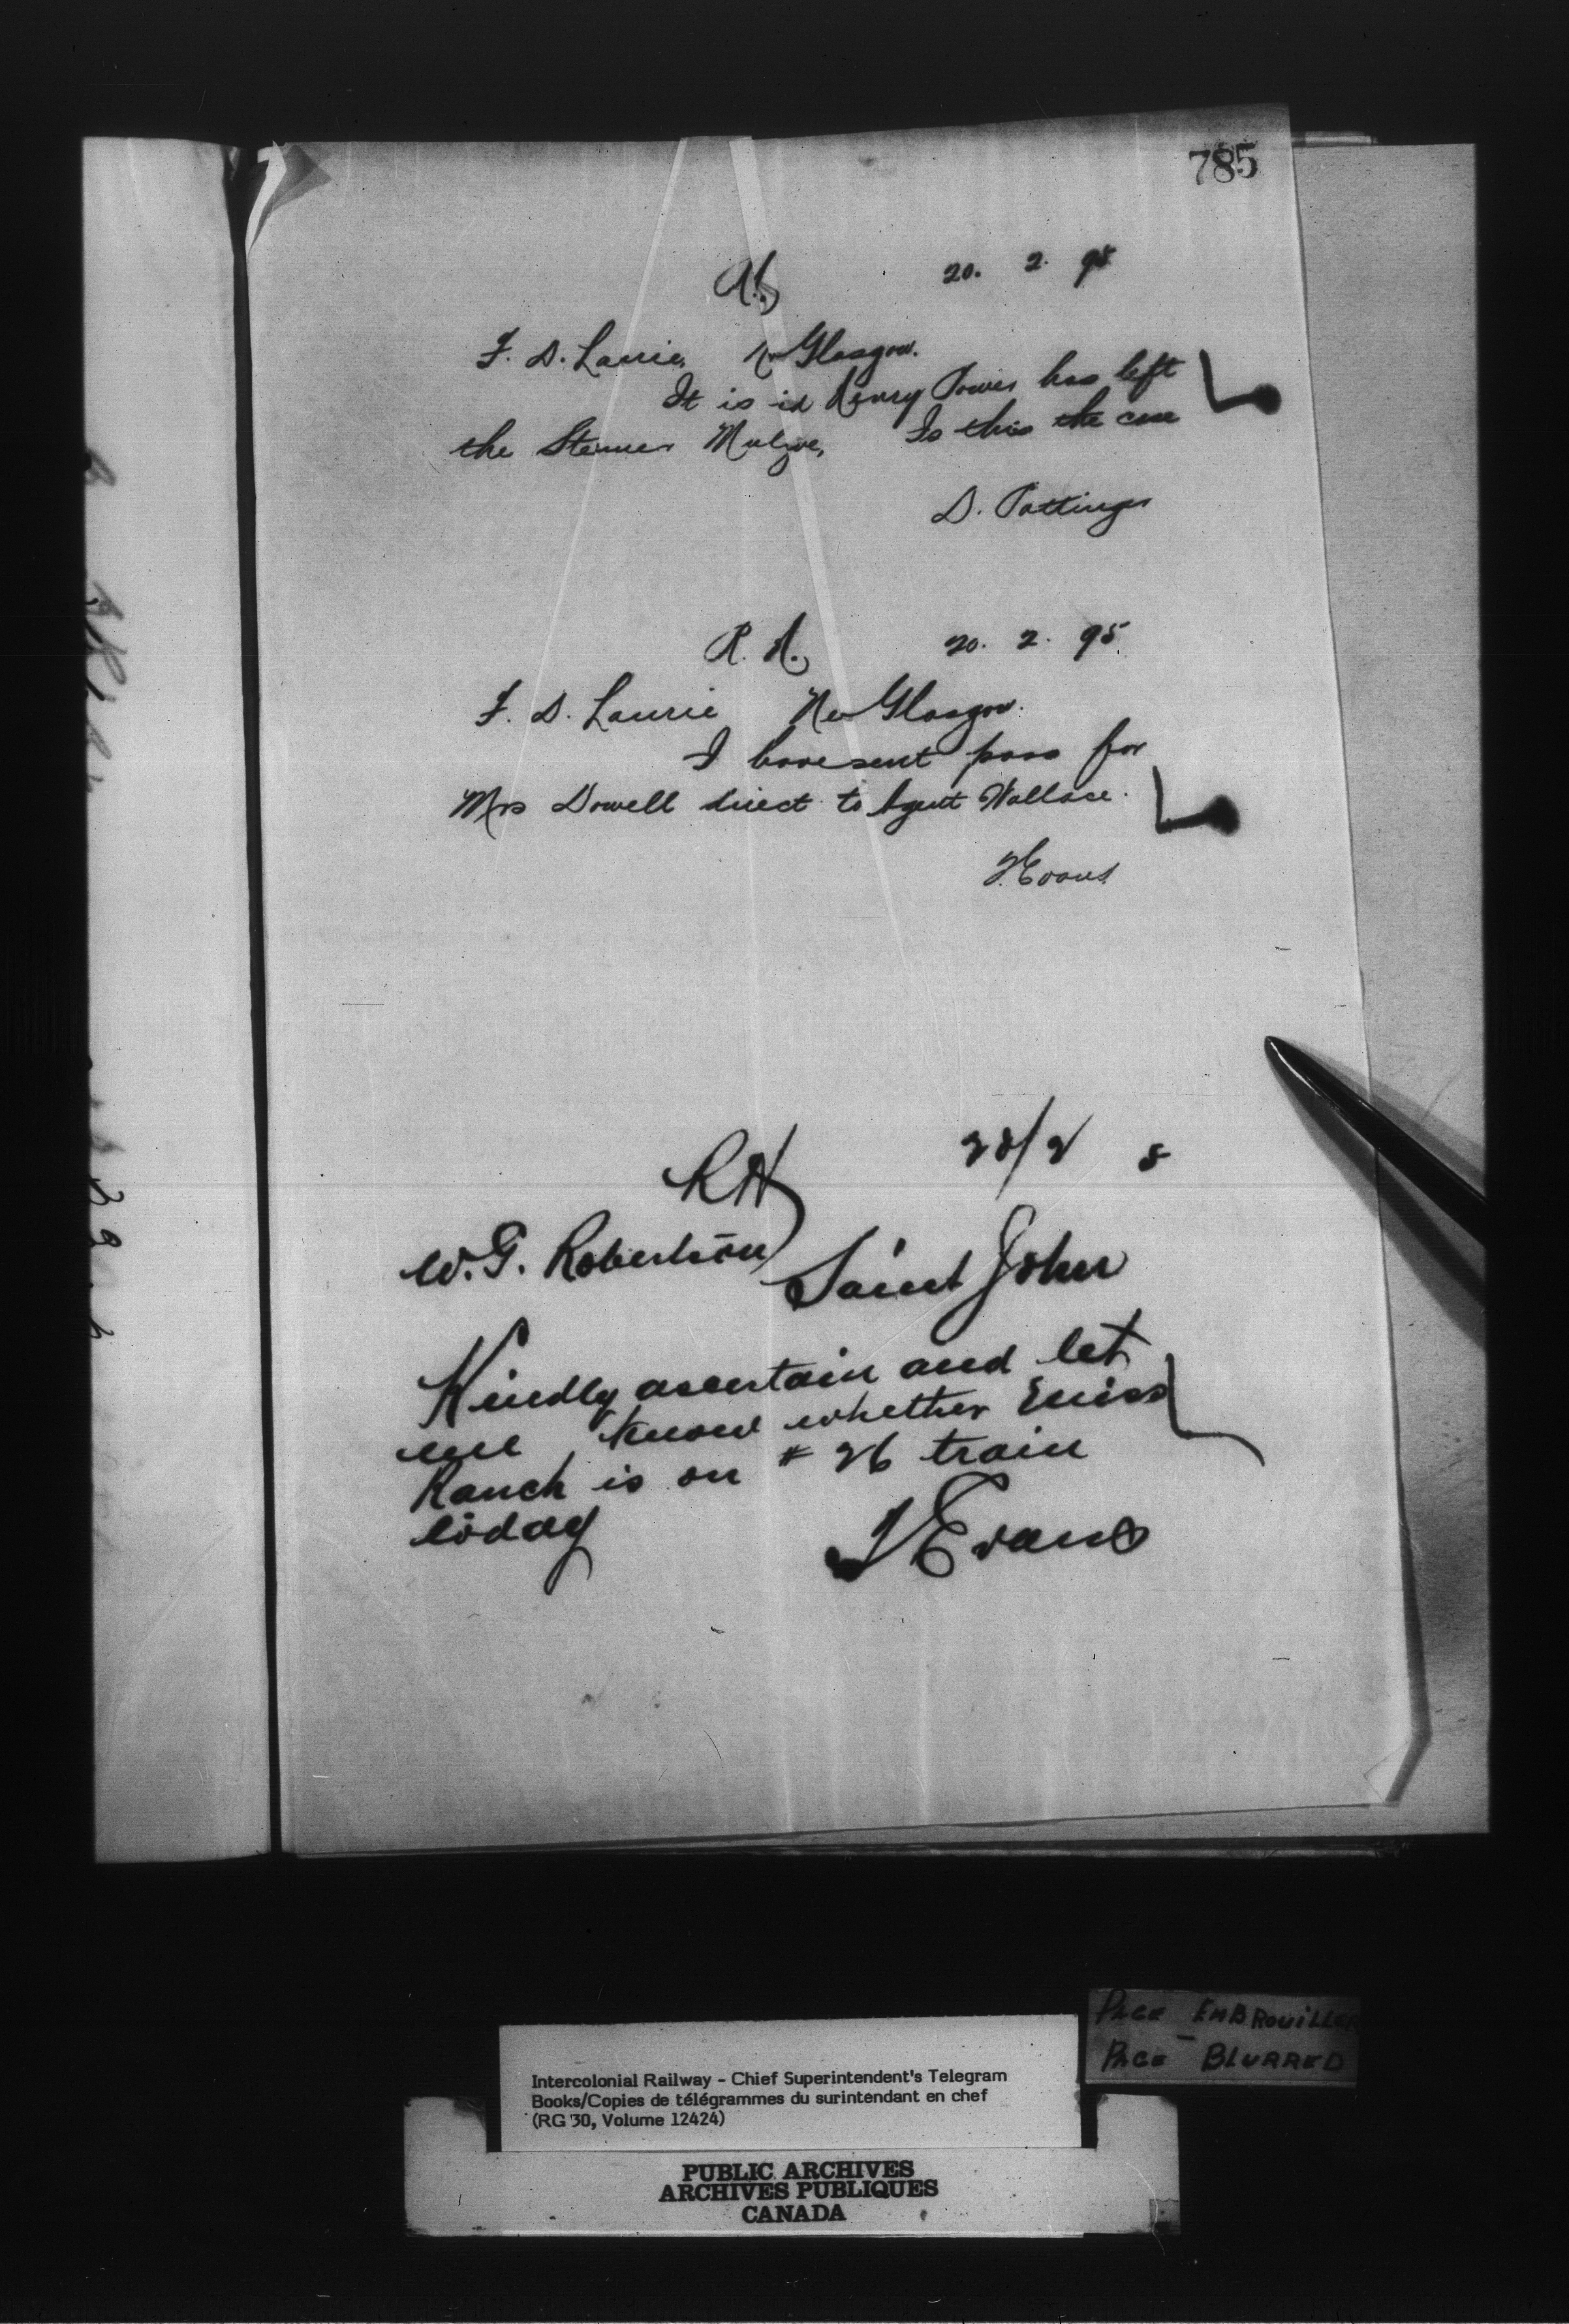 785
20. 2. 95
F. D. Laurie, N Glasgow.
It is id Henry Power has left
the Stemer Mulgve, Is this the case
D. Pottinger
R. A. 20. 2. 95
F. D. Laurie New Glasgow.
I have sent pass for
Mrs Dowell direct to Agent Wallace.
J. Evans
RH 20/2 5
W. G. Robertson Saint John
Kindly ascertain and let
me know whether Miss
Ranch is on # 26 train
today
J Evans
PAGE EMBROUILLER
PAGE BLURRED
Intercolonial Railway - Chief Superintendent's Telegram
Books/Copies de télégrammes du surintendant en chef
(RG 30, Volume 12424)
PUBLIC ARCHIVES
ARCHIVES PUBLIQUES
CANADA